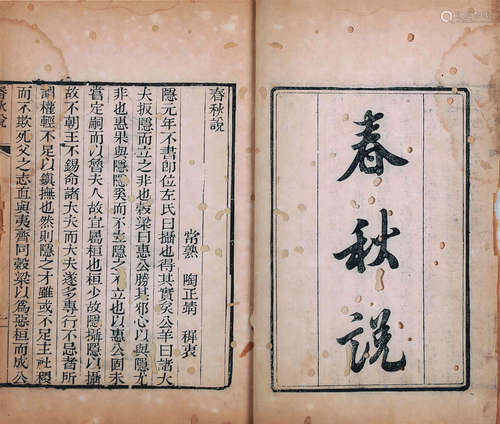 春秋說
春秋說
常熟 陶正靖 稺衷
隱元年不書即位左氏曰攝也得其實矣公羊曰諸大
夫扳隱而立之非也穀梁曰惠公勝其邪心以與隱尤
非也惠果與隱隱奚而不立也以惠公固未
嘗定嗣而以魯夫人故宜屬桓也桓少故隱攝隱以攝
故不朝王不錫命諸大夫而大夫遂多專行不忌者所
謂權輕不足以鎮撫也然則隱之才雖或不足主社稷
而不欺死父之志直與夷齊同穀梁以爲惡桓而成公
春秋說